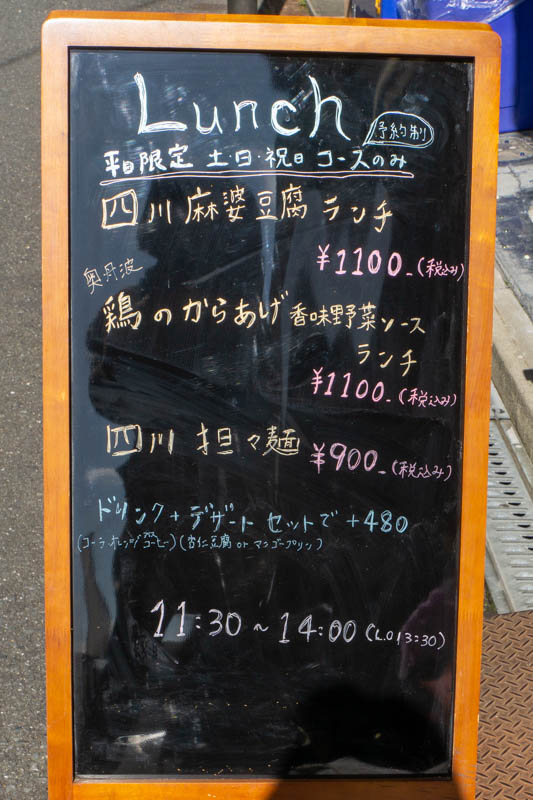 Lunch
予約制
平日限定 土・日・祝日 コースのみ
四川麻婆豆腐ランチ
¥1100-(税込み)
奥丹波
鶏のからあげ香味野菜ソース
ランチ
¥1100-(税込み)
四川担々麺 ¥900-(税込み)
ドリンク+デザートセットで+480
(コーラ・オレンジ・コーヒー)(杏仁豆腐 or マンゴープリン)
11:30~14:00(L.O13:30)